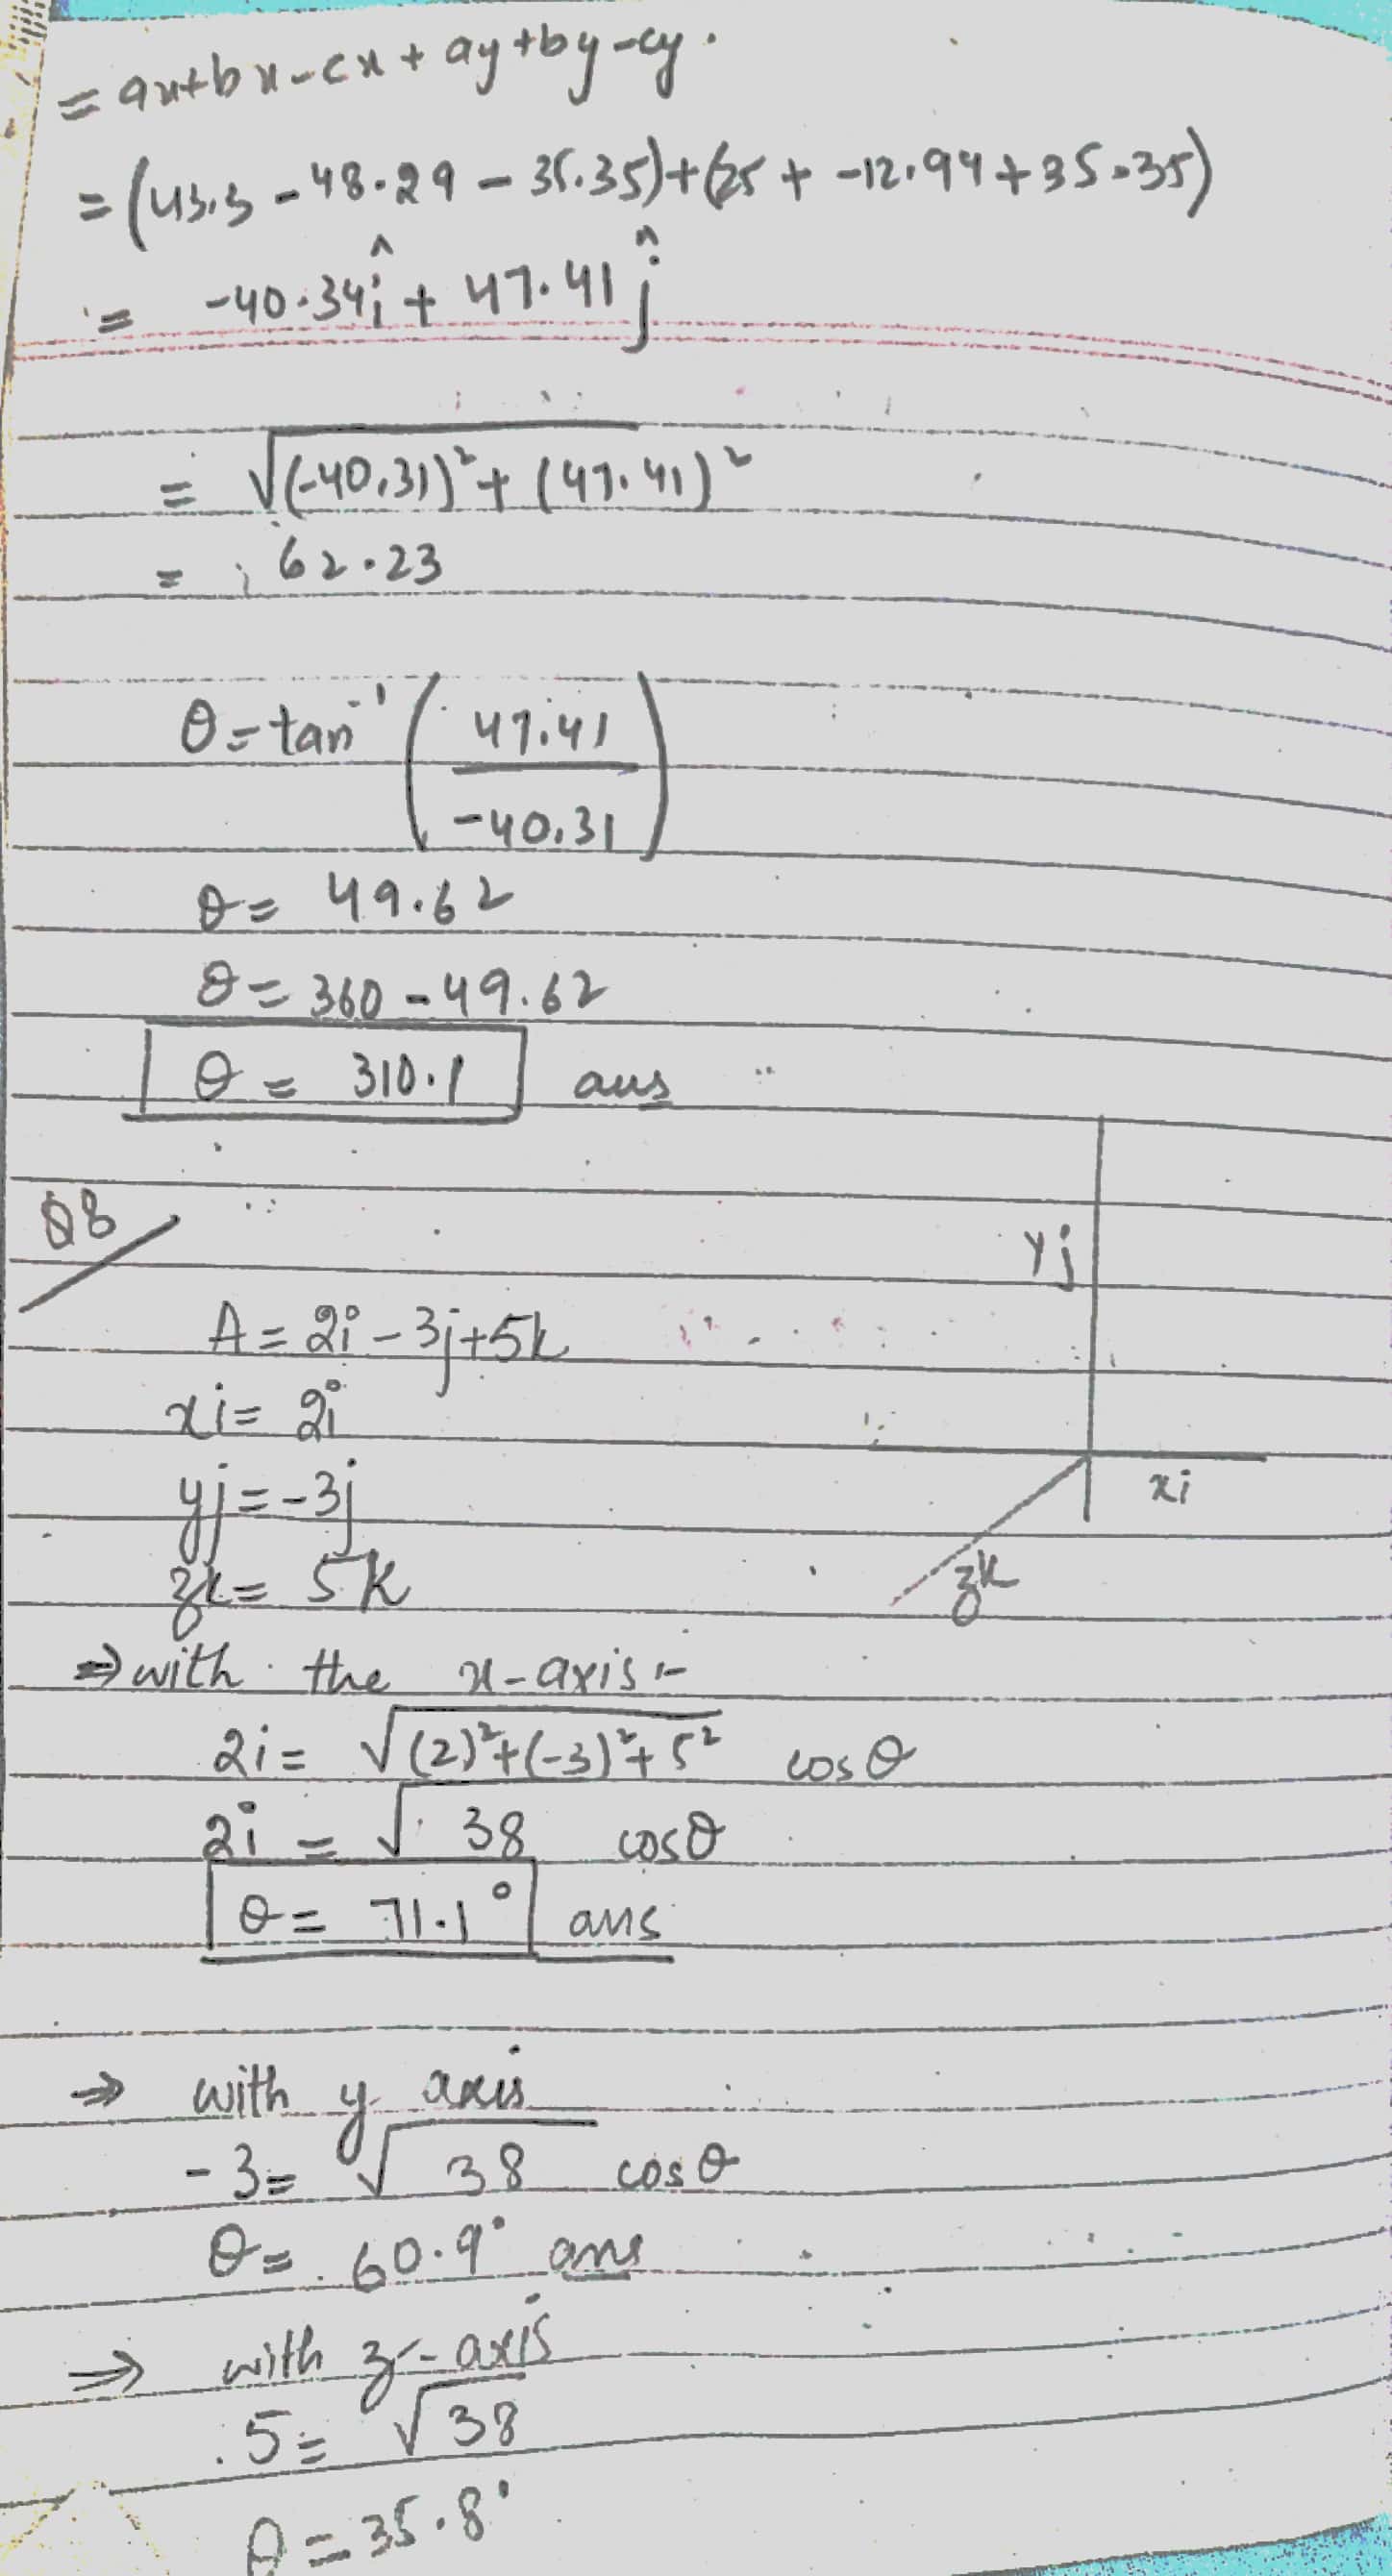 = ax+bx-cx + ay+by-cy.
= (43.3 - 48.29 - 35.35)+(25 + -12.94+35.35)
= -40.34î + 47.41 ĵ
= √(-40.31)² + (47.41)²
= 62.23
θ = tan⁻¹ (47.41 / -40.31)
θ = 49.62
θ = 360 - 49.62
θ = 310.1 ans
Q8
Yj
A = 2i - 3j+5k
xi = 2i
xi
yj = -3j
zk = 5k
zk
⇒ with the x-axis :-
2i = √(2)²+(-3)²+5² cosθ
2i = √38 cosθ
θ = 71.1° ans
⇒ with y axis
-3 = √38 cosθ
θ = 60.9° ans
⇒ with z-axis
5 = √38
θ = 35.8°